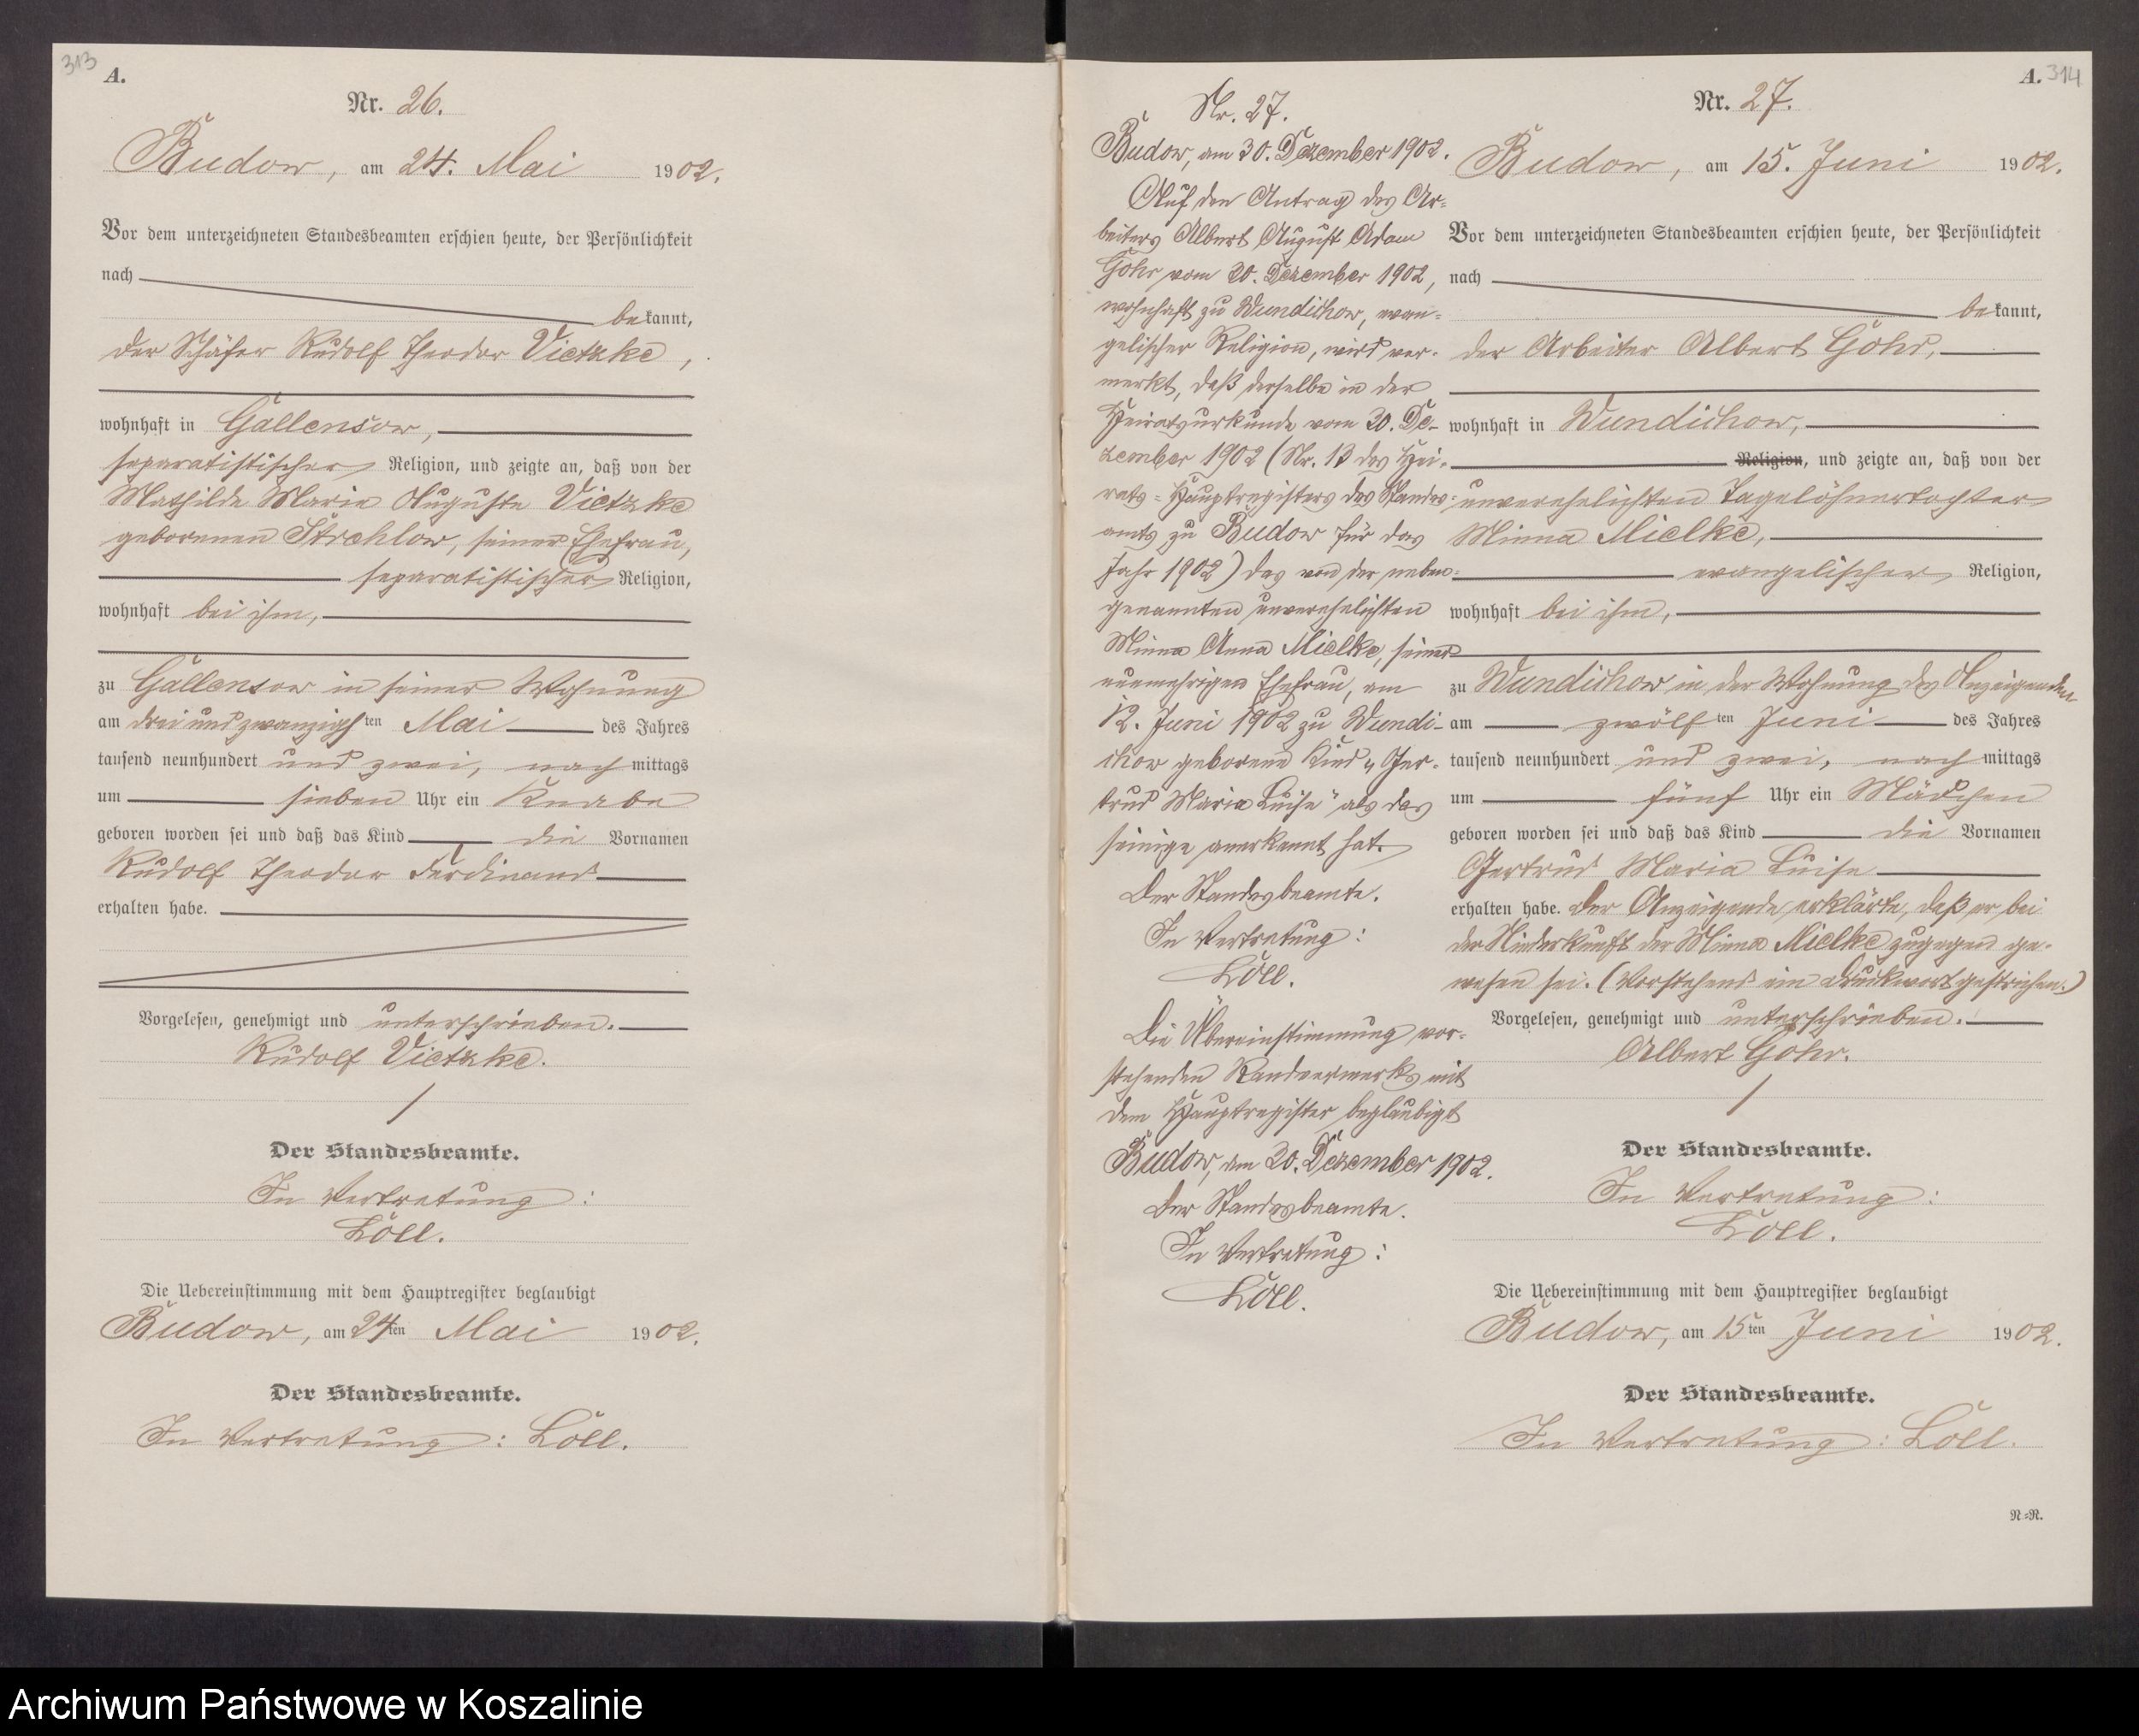 313
A.
Nr. 26.
Budow, am 24. Mai 1902.
Vor dem unterzeichneten Standesbeamten erschien heute, der Persönlichkeit
nach
bekannt,
der Schäfer Rudolf Theodor Vietzke,
wohnhaft in Gallensow,
separatistischer Religion, und zeigte an, daß von der
Mathilde Marie Auguste Vietzke
geborenen Strehlow, seiner Ehefrau,
separatistischer Religion,
wohnhaft bei ihm,
zu Gallensow in seiner Wohnung
am drei und zwanzigsten Mai des Jahres
tausend neunhundert und zwei, nachmittags
um sieben Uhr ein Knabe
geboren worden sei und daß das Kind die Vornamen
Rudolf Theodor Ferdinand
erhalten habe.
Vorgelesen, genehmigt und unterschrieben.
Rudolf Vietzke.
Der Standesbeamte.
In Vertretung:
Löll.
Die Uebereinstimmung mit dem Hauptregister beglaubigt
Budow, am 24ten Mai 1902.
Der Standesbeamte.
In Vertretung: Löll.
Nr. 27.
Budow, am 30. Dezember 1902.
Auf den Antrag des Ar-
beiters Albert August Adam
Gohr vom 30. Dezember 1902,
wohnhaft zu Wundichow, evan-
gelischer Religion, wird ver-
merkt, daß derselbe in der
Heiratsurkunde vom 30. De-
zember 1902 (Nr. 13 des Hei-
rats-Hauptregisters des Standes-
amts zu Budow für das
Jahr 1902) das von der neben-
genannten unverehelichten
Minna Anna Mielke, seiner
nunmehrigen Ehefrau, am
12. Juni 1902 zu Wundi-
chow geborene Kind "Ger-
trud Maria Luise" als das
seinige anerkannt hat.
Der Standesbeamte.
In Vertretung:
Löll.
Die Übereinstimmung vor-
stehenden Randvermerks mit
dem Hauptregister beglaubigt
Budow, am 30. Dezember 1902.
Der Standesbeamte.
In Vertretung:
Löll.
A. 314
Nr. 27.
Budow, am 15. Juni 1902.
Vor dem unterzeichneten Standesbeamten erschien heute, der Persönlichkeit
nach
bekannt,
der Arbeiter Albert Gohr,
wohnhaft in Wundichow,
Religion, und zeigte an, daß von der
unverehelichten Tagelöhnertochter
Minna Mielke,
evangelischer Religion,
wohnhaft bei ihm,
zu Wundichow in der Wohnung des Anzeigenden
am zwölften Juni des Jahres
tausend neunhundert und zwei, nachmittags
um fünf Uhr ein Mädchen
geboren worden sei und daß das Kind die Vornamen
Gertrud Maria Luise
erhalten habe. Der Anzeigende erklärte, daß er bei
der Niederkunft der Minna Mielke zugegen ge-
wesen sei. (Vorstehend ein Druckwort gestrichen.)
Vorgelesen, genehmigt und unterschrieben.
Albert Gohr.
Der Standesbeamte.
In Vertretung:
Löll.
Die Uebereinstimmung mit dem Hauptregister beglaubigt
Budow, am 15ten Juni 1902.
Der Standesbeamte.
In Vertretung: Löll.
N=R.
Archiwum Państwowe w Koszalinie